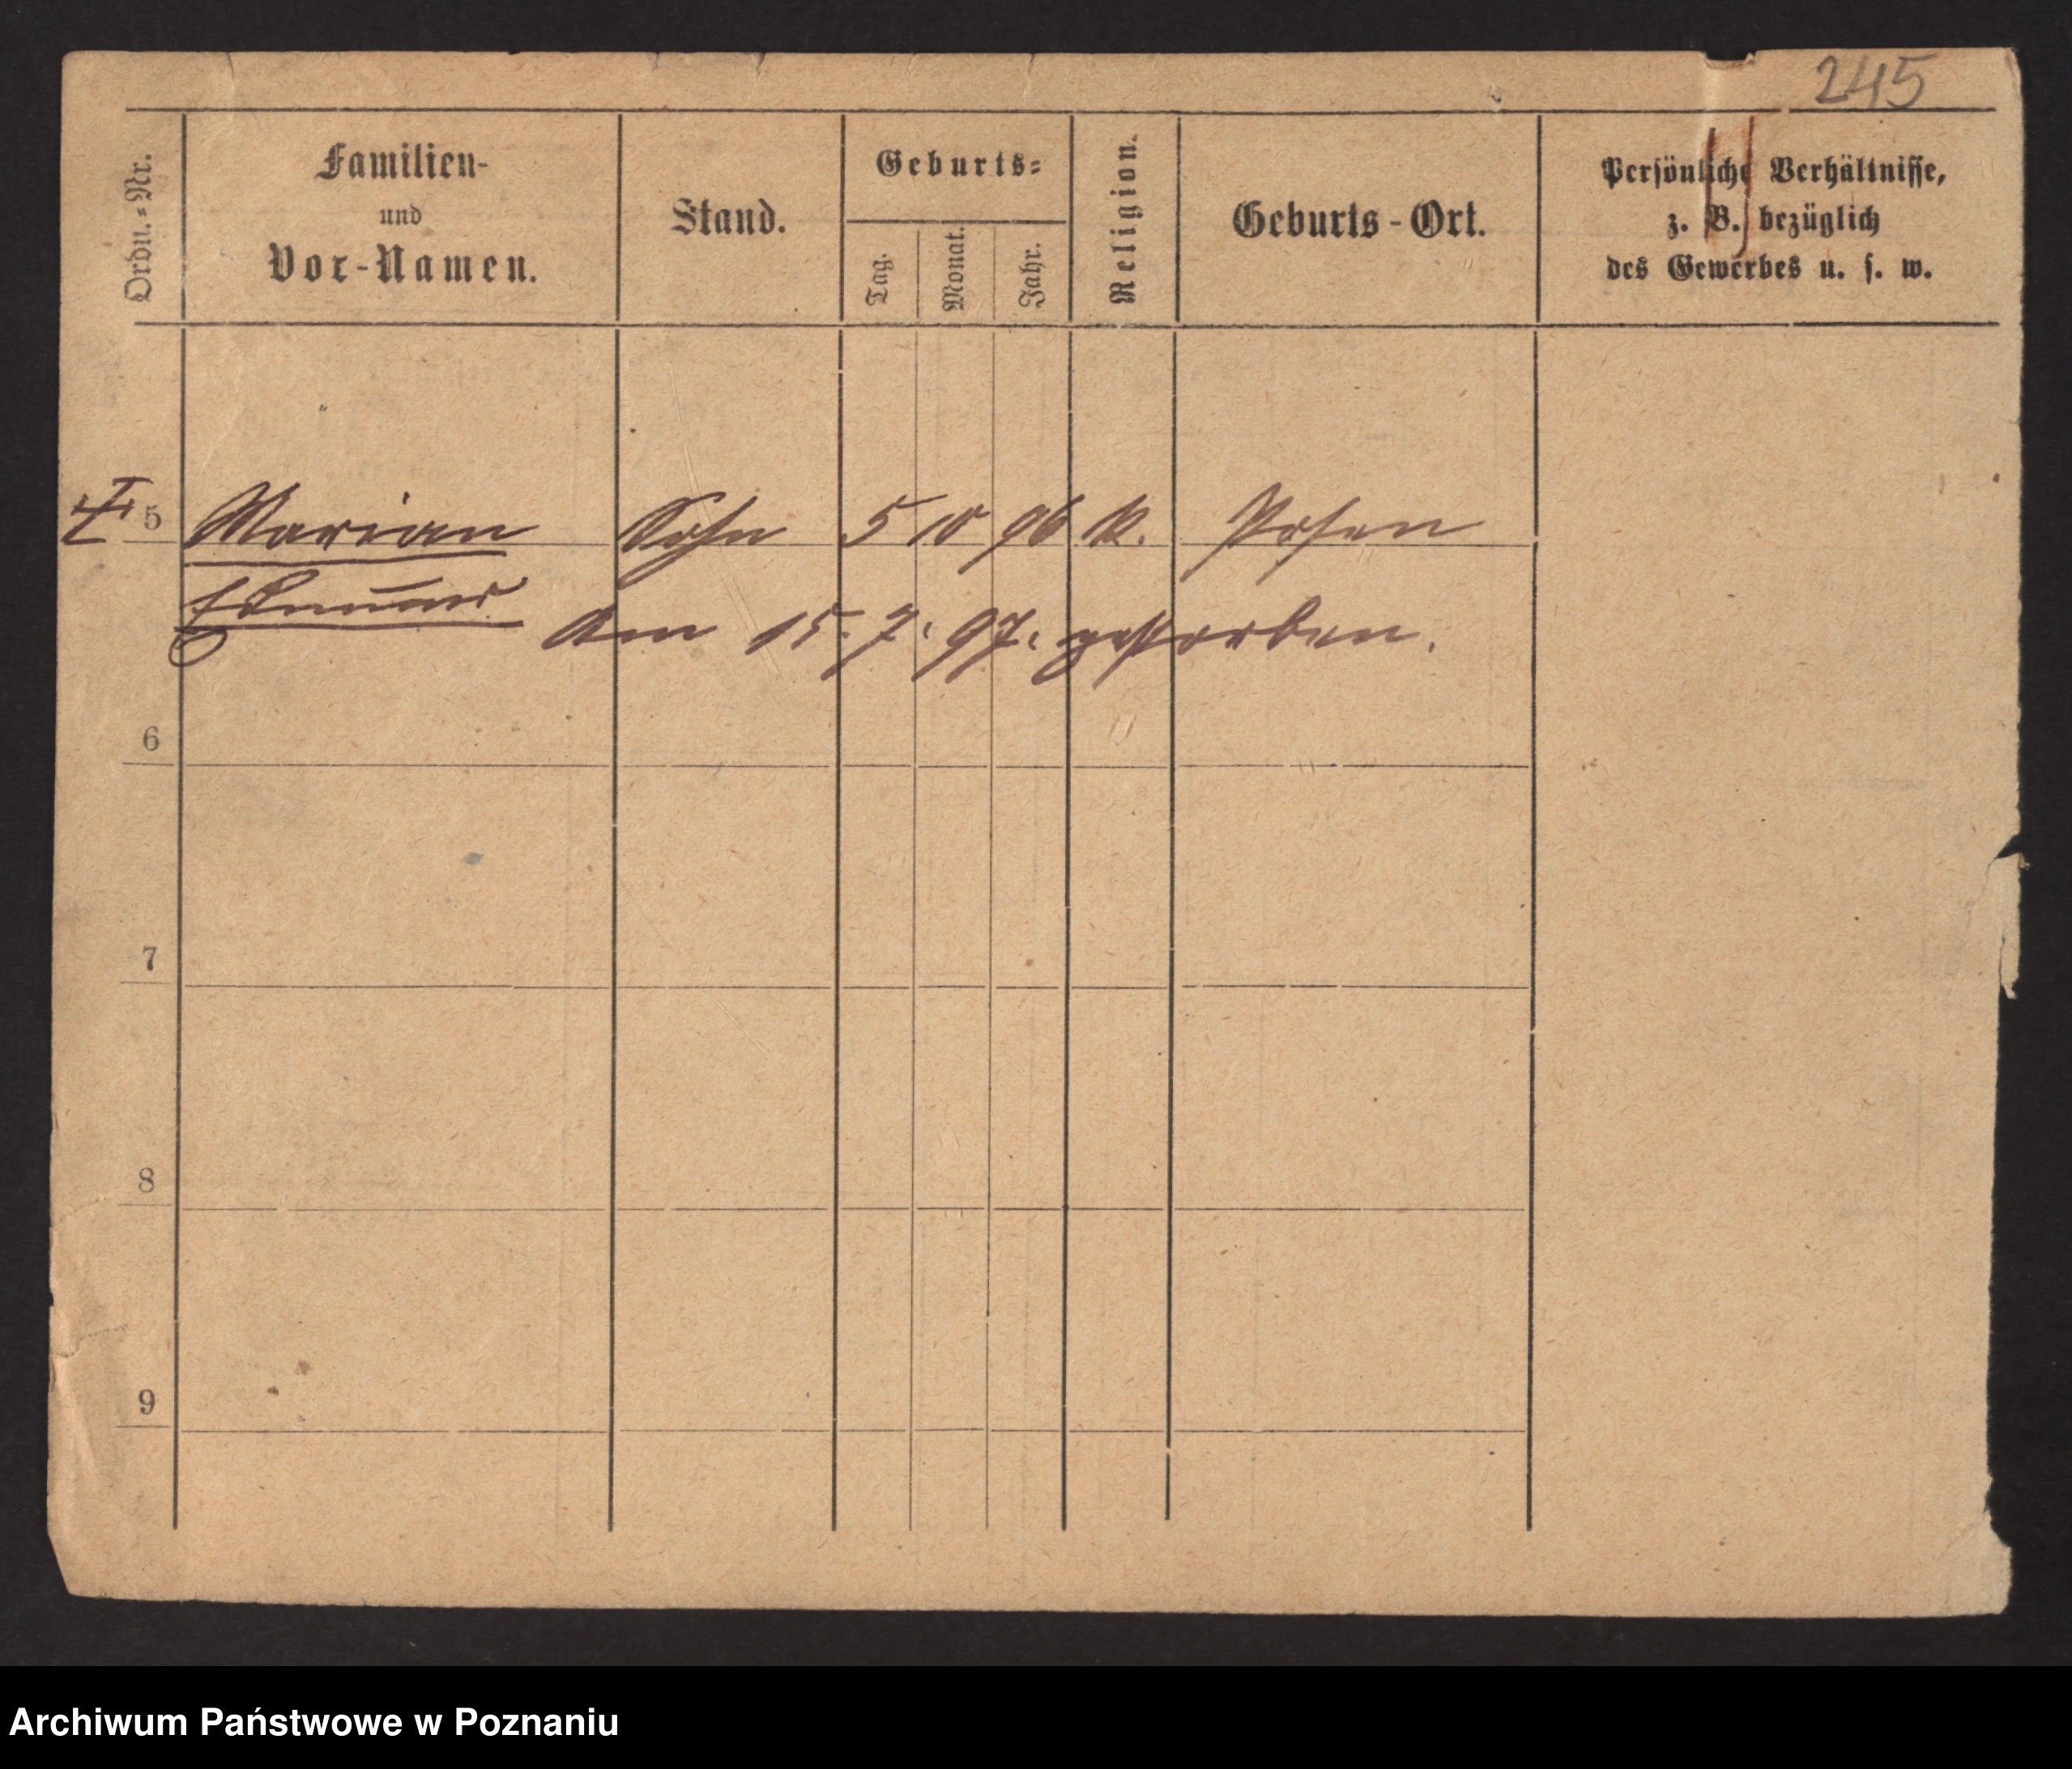 245
Ordn.-Nr.
Familien-
und
Vor-Namen.
Stand.
Geburts-
Tag.
Monat.
Jahr.
Religion.
Geburts-Ort.
Persönliche Verhältnisse,
z. B. bezüglich
des Gewerbes u. s. w.
5 Marian Sohn 5 10 96 k. Posen
Edmund
Am 15. 7. 97. gestorben.
6
7
8
9
Archiwum Państwowe w Poznaniu